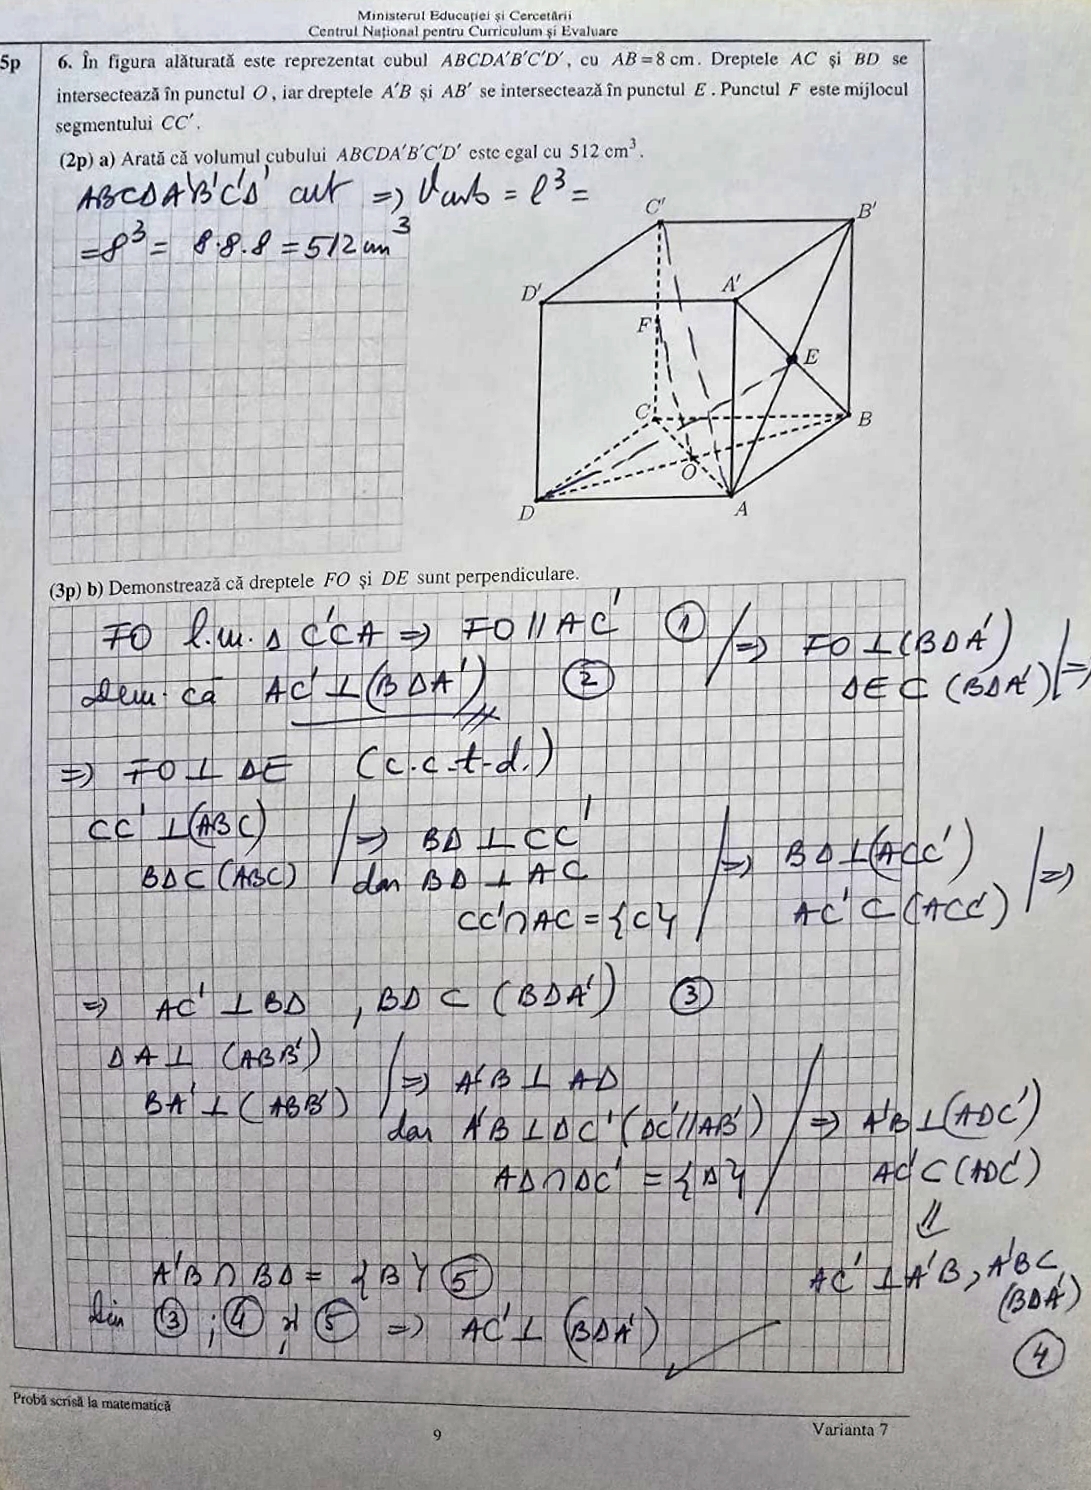 Ministerul Educației și Cercetării
Centrul Național pentru Curriculum și Evaluare
5p
6. În figura alăturată este reprezentat cubul ABCDA'B'C'D', cu AB = 8 cm. Dreptele AC și BD se
intersectează în punctul O, iar dreptele A'B și AB' se intersectează în punctul E. Punctul F este mijlocul
segmentului CC'.
(2p) a) Arată că volumul cubului ABCDA'B'C'D' este egal cu 512 cm³.
ABCDA'B'C'D' cub => Vcub = l³ =
= 8³ = 8·8·8 = 512 cm³
C'
B'
D'
A'
F
E
C
B
O
D
A
(3p) b) Demonstrează că dreptele FO și DE sunt perpendiculare.
FO l.m. Δ C'CA => FO // AC' ① => FO ⊥ (BDA')
Dem. că AC' ⊥ (BDA') ② DE ⊂ (BDA') =>
=> FO ⊥ DE (c.c.t.d.)
CC' ⊥ (ABC) => BD ⊥ CC' => BD ⊥ (ACC') =>
BD ⊂ (ABC) dar BD ⊥ AC AC' ⊂ (ACC')
CC' ∩ AC = {C}
=> AC' ⊥ BD , BD ⊂ (BDA') ③
DA ⊥ (ABB') => A'B ⊥ AD
BA' ⊥ (ABB') dar A'B ⊥ DC' (DC' // AB') => A'B ⊥ (ADC')
AD ∩ DC' = {D} AC' ⊂ (ADC')
⇓
A'B ∩ BD = {B} ⑤ AC' ⊥ A'B, A'B ⊂
(BDA')
Din ③ ; ④ și ⑤ => AC' ⊥ (BDA')
④
Probă scrisă la matematică
Varianta 7
9